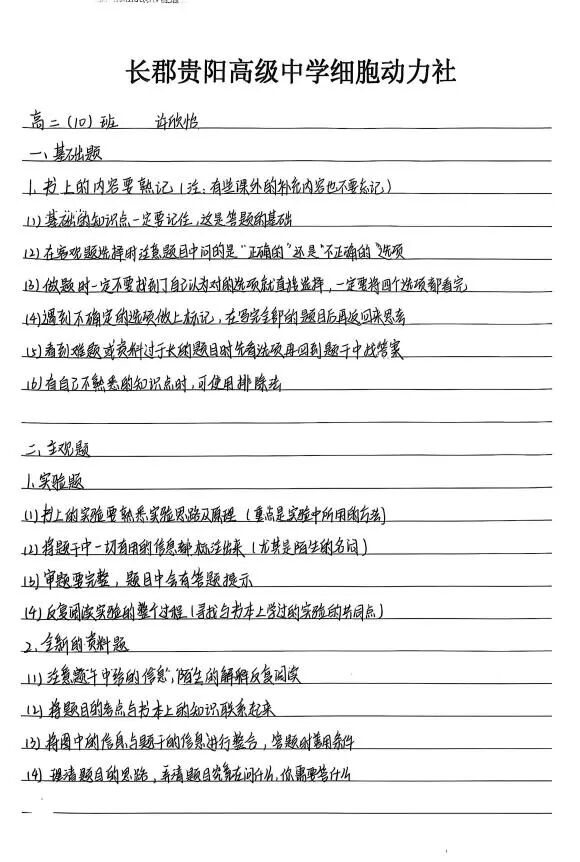 长郡贵阳高级中学细胞动力社
高二（10）班 许欣怡
一、基础题
1. 书上的内容要熟记（注：有些课外的补充内容也不要忘记）
(1) 基础的知识点一定要记住，这是答题的基础
(2) 在客观题选择时注意题目中问的是“正确的”还是“不正确的”选项
(3) 做题时一定不要找到了自己认为对的选项就直接选择，一定要将四个选项都看完
(4) 遇到不确定的选项做上标记，在写完全部的题目后再返回来思考
(5) 看到难题或资料过于长的题目时先看选项再回到题干中找答案
(6) 有自己不熟悉的知识点时，可使用排除法
二、主观题
1. 实验题
(1) 书上的实验要熟悉实验思路及原理（重点是实验中所用的方法）
(2) 将题干中一切有用的信息都标注出来（尤其是陌生的名词）
(3) 审题要完整，题目中会有答题提示
(4) 反复阅读实验的整个过程（寻找与书本上学过的实验的共同点）
2. 全新的资料题
(1) 注意题干中给的信息，陌生的解释反复阅读
(2) 将题目的考点与书本上的知识联系起来
(3) 将图中的信息与题干的信息进行整合，答题时善用条件
(4) 理清题目的思路，弄清题目究竟在问什么，你需要答什么